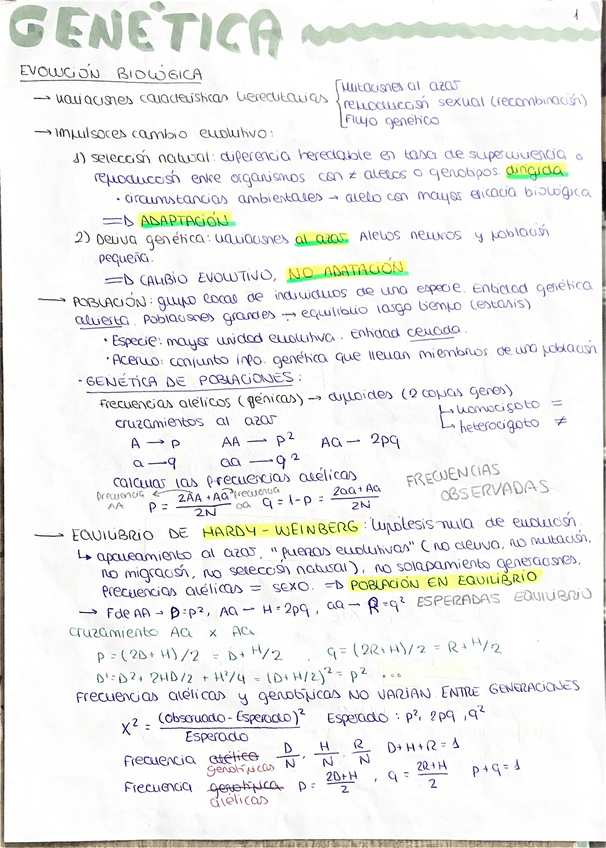 GENÉTICA
1
EVOLUCIÓN BIOLÓGICA
→ variaciones características hereditarias
mutaciones al azar
reproducción sexual (recombinación)
flujo genético
→ Impulsores cambio evolutivo:
1) selección natural: diferencia heredable en tasa de supervivencia o
reproducción entre organismos con ≠ alelos o genotipos. dirigida
· circunstancias ambientales → alelo con mayor eficacia biológica
⇒ ADAPTACIÓN
2) Deriva genética: variaciones al azar. Alelos neutros y población
pequeña.
⇒ CAMBIO EVOLUTIVO, NO ADATACIÓN
→ POBLACIÓN: grupo local de individuos de una especie. Entidad genética
abierta. Poblaciones grandes → equilibrio largo tiempo (estasis)
· Especie: mayor unidad evolutiva. Entidad cerrada.
· Acervo: conjunto info. genética que llevan miembros de una población.
· GENÉTICA DE POBLACIONES:
Frecuencias alélicos (génicas) → diploides (2 copias genes)
↳ homocigoto =
↳ heterocigoto ≠
cruzamientos al azar
A → p AA → p² Aa → 2pq
a → q aa → q²
calcular las frecuencias alélicas
frecuencia AA
frecuencia aa
p = 2AA + Aa / 2N q = 1 - p = 2aa + Aa / 2N
FRECUENCIAS
OBSERVADAS
→ EQUILIBRIO DE HARDY-WEINBERG: hipótesis nula de evolución.
↳ apareamiento al azar, "fuerzas evolutivas" (no deriva, no mutación,
no migración, no selección natural), no solapamiento generaciones.
Frecuencias alélicas = sexo. ⇒ POBLACIÓN EN EQUILIBRIO
→ F de AA → D = p², Aa → H = 2pq, aa → R = q² ESPERADAS EQUILIBRIO
cruzamiento Aa x Aa
p = (2D + H)/2 = D + H/2 , q = (2R + H)/2 = R + H/2
D' = D² + 2HD/2 + H²/4 = (D + H/2)² = p² ...
Frecuencias alélicas y genotípicas NO VARÍAN ENTRE GENERACIONES
X² = (Observado - Esperado)² / Esperado Esperado: p², 2pq, q²
Frecuencia alélica genotípicas D/N · H/N · R/N D + H + R = 1
Frecuencia genotípica alélicas p = 2D+H / 2 , q = 2R+H / 2 p + q = 1